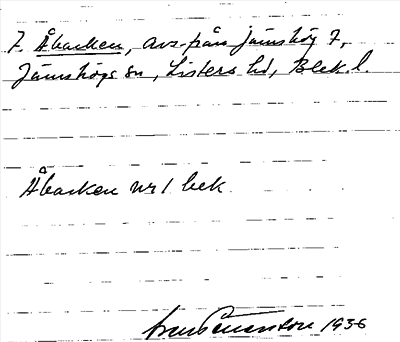 7. Åbacken, avs. från Jämshög 7,
Jämshögs sn, Listers hd, Blek. l.
Åbacken nr 1 bek.
1936